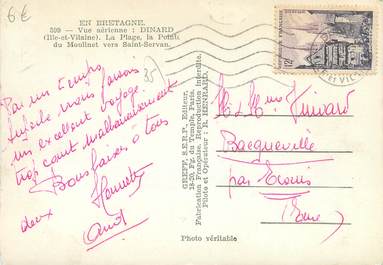 6€
EN BRETAGNE.
309 — Vue aérienne : DINARD
(Ille-et-Vilaine). La Plage, la Pointe
du Moulinet vers Saint-Servan.
35
Par un temps
nous faisons
un excellent voyage
trop court malheureusement
Bons baisers à tous
deux Henriette
GREFF, S.E.R.P., Editeur,
18-20, Fg. du Temple, Paris
Fabrication Française. Reproduction Interdite.
Pilote et Opérateur : R. HENRARD.
Photo véritable
12F
M et Mme
Bacqueville
par Ecouis
(Eure)